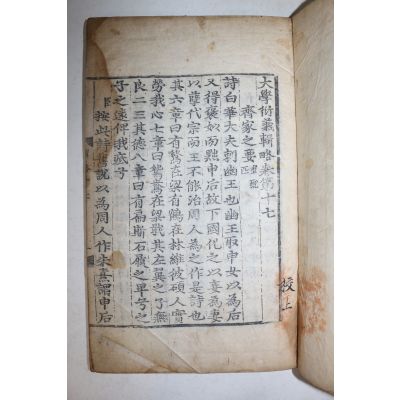 大學衍義輯略卷第十七
齊家之要
詩白華大夫刺幽王也幽王取申女以為后
又得褒姒而黜申后故下國化之以妾為妻
以孽代宗而王不能治周人為之作是詩也
其六章曰有鶖在梁有鶴在林維彼碩人實
勞我心七章曰鴛鴦在梁戢其左翼之子無
良二三其德八章曰有扁斯石履之卑兮之
子之遠俾我疧兮
臣按此詩舊說以為周人作朱熹謂申后
校上